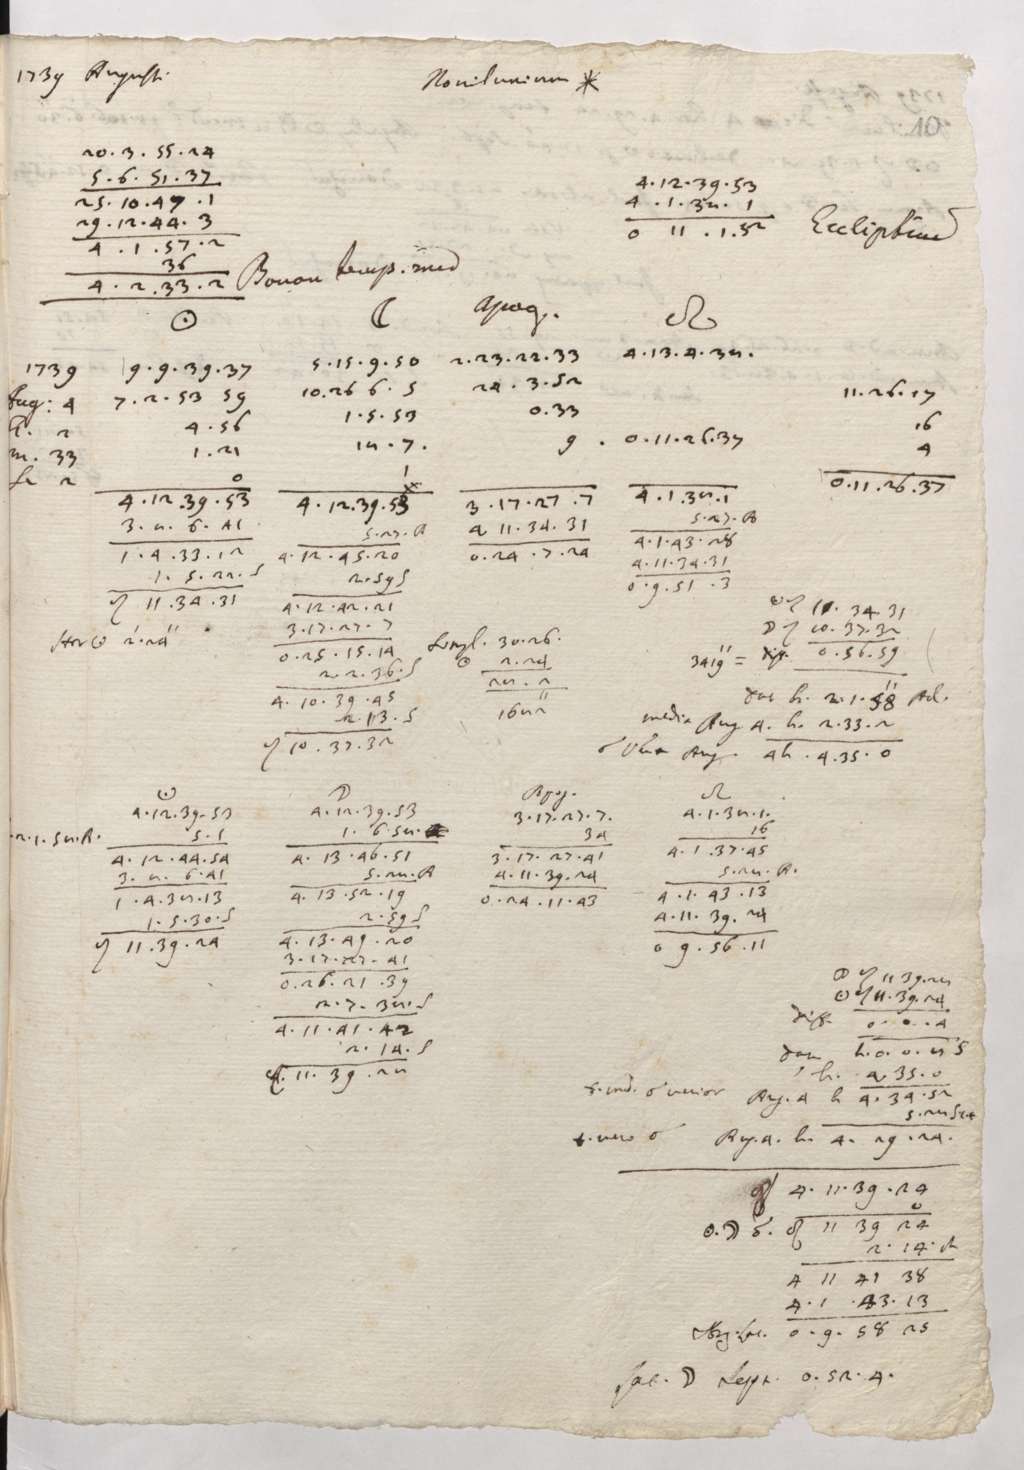 1739 Augusti Novilunium *
10
20.3.55.24
5.6.51.37
25.10.47.1
29.12.44.3
4.1.57.2
36
4.2.33.2 Bonon temp. med
4.12.39.53
4.1.35.1
0 11.1.52 Ecclipticum
☉ ☾ Apog. ☊
1739 9.9.39.37 5.15.9.50 2.23.22.33 4.13.4.35.
Aug: 4 7.2.53 59 10.26 6.5 24.3.52 11.26.17
h. 2 4.56 1.5.53 0.33 16
m. 33 1.21 15.7. 9. 0.11.26.37 4
se 2 0 1 0.11.26.37
4.12.39.53 4.12.39.53 3.17.27.7 4.1.35.1
3.5.6.41 5.27.A 4 11.34.31 5.27.A
1.4.33.12 4.12.45.20 0.24.7.24 4.1.43.28
1.5.22.S 2.59 S 4.11.34.31
♌ 11.34.31 4.12.42.21 0.9.51.3
3.17.27.7
0.25.15.14
2.2.36.S
4.10.39.45
2.13.S
♌ 10.37.32
Hor ☉ 2.24"
30.26.
☉ 2.24
25.2
1652"
☉ ♌ 11.34.31
☽ ♌ 10.37.32
3419" = diff. 0.56.59
dat h. 2.1.58" Ad.
media Aug 4. h. 2.33.2
Aug. 4h.4.35.0
☉ ☽ Apog. ☊
4.12.39.53 4.12.39.53 3.17.27.7. 4.1.35.1.
2.1.55.A. 5.1 1.6.55. 34 16
4.12.44.54 4.13.46.51 3.17.27.41 4.1.37.45
3.5.6.41 5.25.A 4.11.39.24 5.25.A.
1.4.35.13 4.13.52.19 0.24.11.43 4.1.43.13
1.5.30.S 2.59 S 4.11.39.24
♌ 11.39.24 4.13.49.20 0 9.56.11
3.17.27.41
0.26.21.39
2.7.35.S
4.11.41.42
2.14.S
♌. 11.39.25
☽ ♌ 11 39.25
☉ ♌ 11.39.24
diff. 0.0.4
dat h.0.0.5 S
h. 4 35.0
t. med. ☌ verior Aug. 4 h 4.34.52
t. vero ☌ Aug. 4. h. 4. 29.24.
♌ 4.11.39.24
0
☉.☽ ☌. ♌ 11 39 24
2.14.A
4 11 41 38
4.1.43.13
Arg. lat. 0.9.58 25
lat. ☽ Sept. 0.52.4.